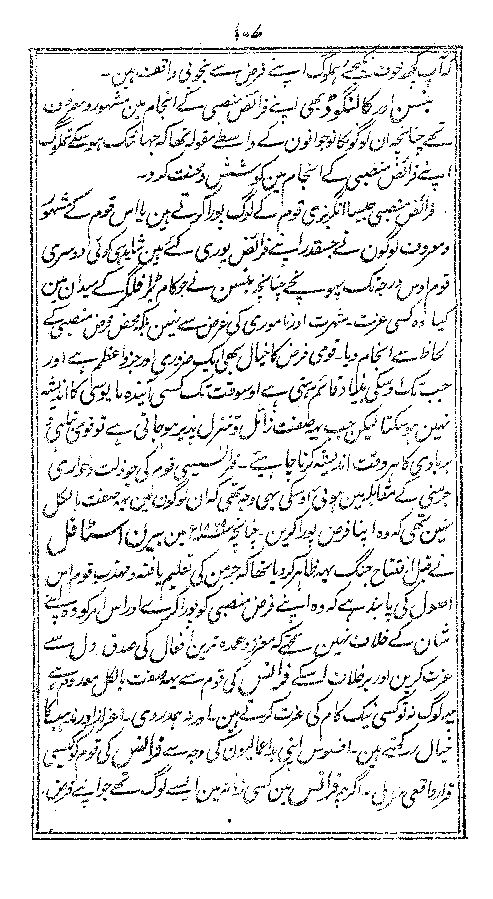 ۱۰۶
کہ آپ کچھ خوف نکیجے ہملوگ اپنے فرض سے بخوبی واقف ہین ۔
نلسن اور کالنگوڈ بھی اپنے فرائض منصبی کے انجام مین مشہور و معروف
تھے چنانچہ ان لوگونکا نوجوانون کے واسطے مقولہ تھا کہ جہانتک ہو سکے تملوگ
اپنے فرائض منصبی کے انجام مین کوشش و محنت کرو ۔
فرائض منصبی جیسا انگریزی قوم کے لوگ پورا کرتے ہین یا اس قوم کے مشہور
و معروف لوگون نے جسقدر اپنے فرائض پوری کے ہین شاید ہی کوئی دوسری
قوم اوس درجہ تک پہونچے چنانچہ نلسن نے جو کام ٹرافلگر کے میدان مین
کیا وہ کسی عزت ۔ شہرت اور ناموری کی غرض سے نہین بلکہ محض فرض منصبی کے
لحاظ سے انجام دیا ۔ قومی فرض کا خیال بھی ایک ضروری اور جزو اعظم ہے اور
جب تک اوسکی بنیاد قائم رہتی ہے اوسوقت تک کسی آیندہ مایوسی کا اندیشہ
نہین ہو سکتا لیکن جب یہ صفت زائل و تنزل پذیر ہو جاتی ہے تو قومی تباہی و
بربادی کا ہر وقت اندیشہ کرنا چاہیے ۔ فرانسیسی قوم کی جو ذلت و خواری
جرمنی کے مقابلہ مین ہوئی اوسکی یہی وجہ تھی کہ ان لوگون مین یہ صفت بالکل
نہین تھی کہ وہ اپنا فرض پورا کرین ۔ چنانچہ مین بیرن اسٹافل
نے قبل افتتاح جنگ یہ ظاہر کر دیا تھا کہ جرمن کی تعلیم یافتہ و مہذب قوم اس
اصول کی پابند ہے کہ وہ اپنے فرض منصبی کو پورا کرے اور اس امر کو وہ اپنے
شان کے خلاف نہین سمجھے کہ معزز و عمدہ ترین افعال کی صدق دل سے
عزت کرین اور برخلاف اسکے فرانس کی قوم سے یہ صفت بالکل معدوم ہے
یہ لوگ نہ تو کسی نیک کام کی عزت کرتے ہین ۔ اور نہ ہمدردی ۔ اعزاز اور مذہب کا
خیال رکھتے ہین ۔ افسوس اپنی بد اعمالیون کی وجہ سے فرانس کی قوم کو کیسی
قرار واقعی سزا ملی ۔ اگرچہ فرانس مین کسی زمانہ مین ایسے لوگ تھے جو اپنے فرض